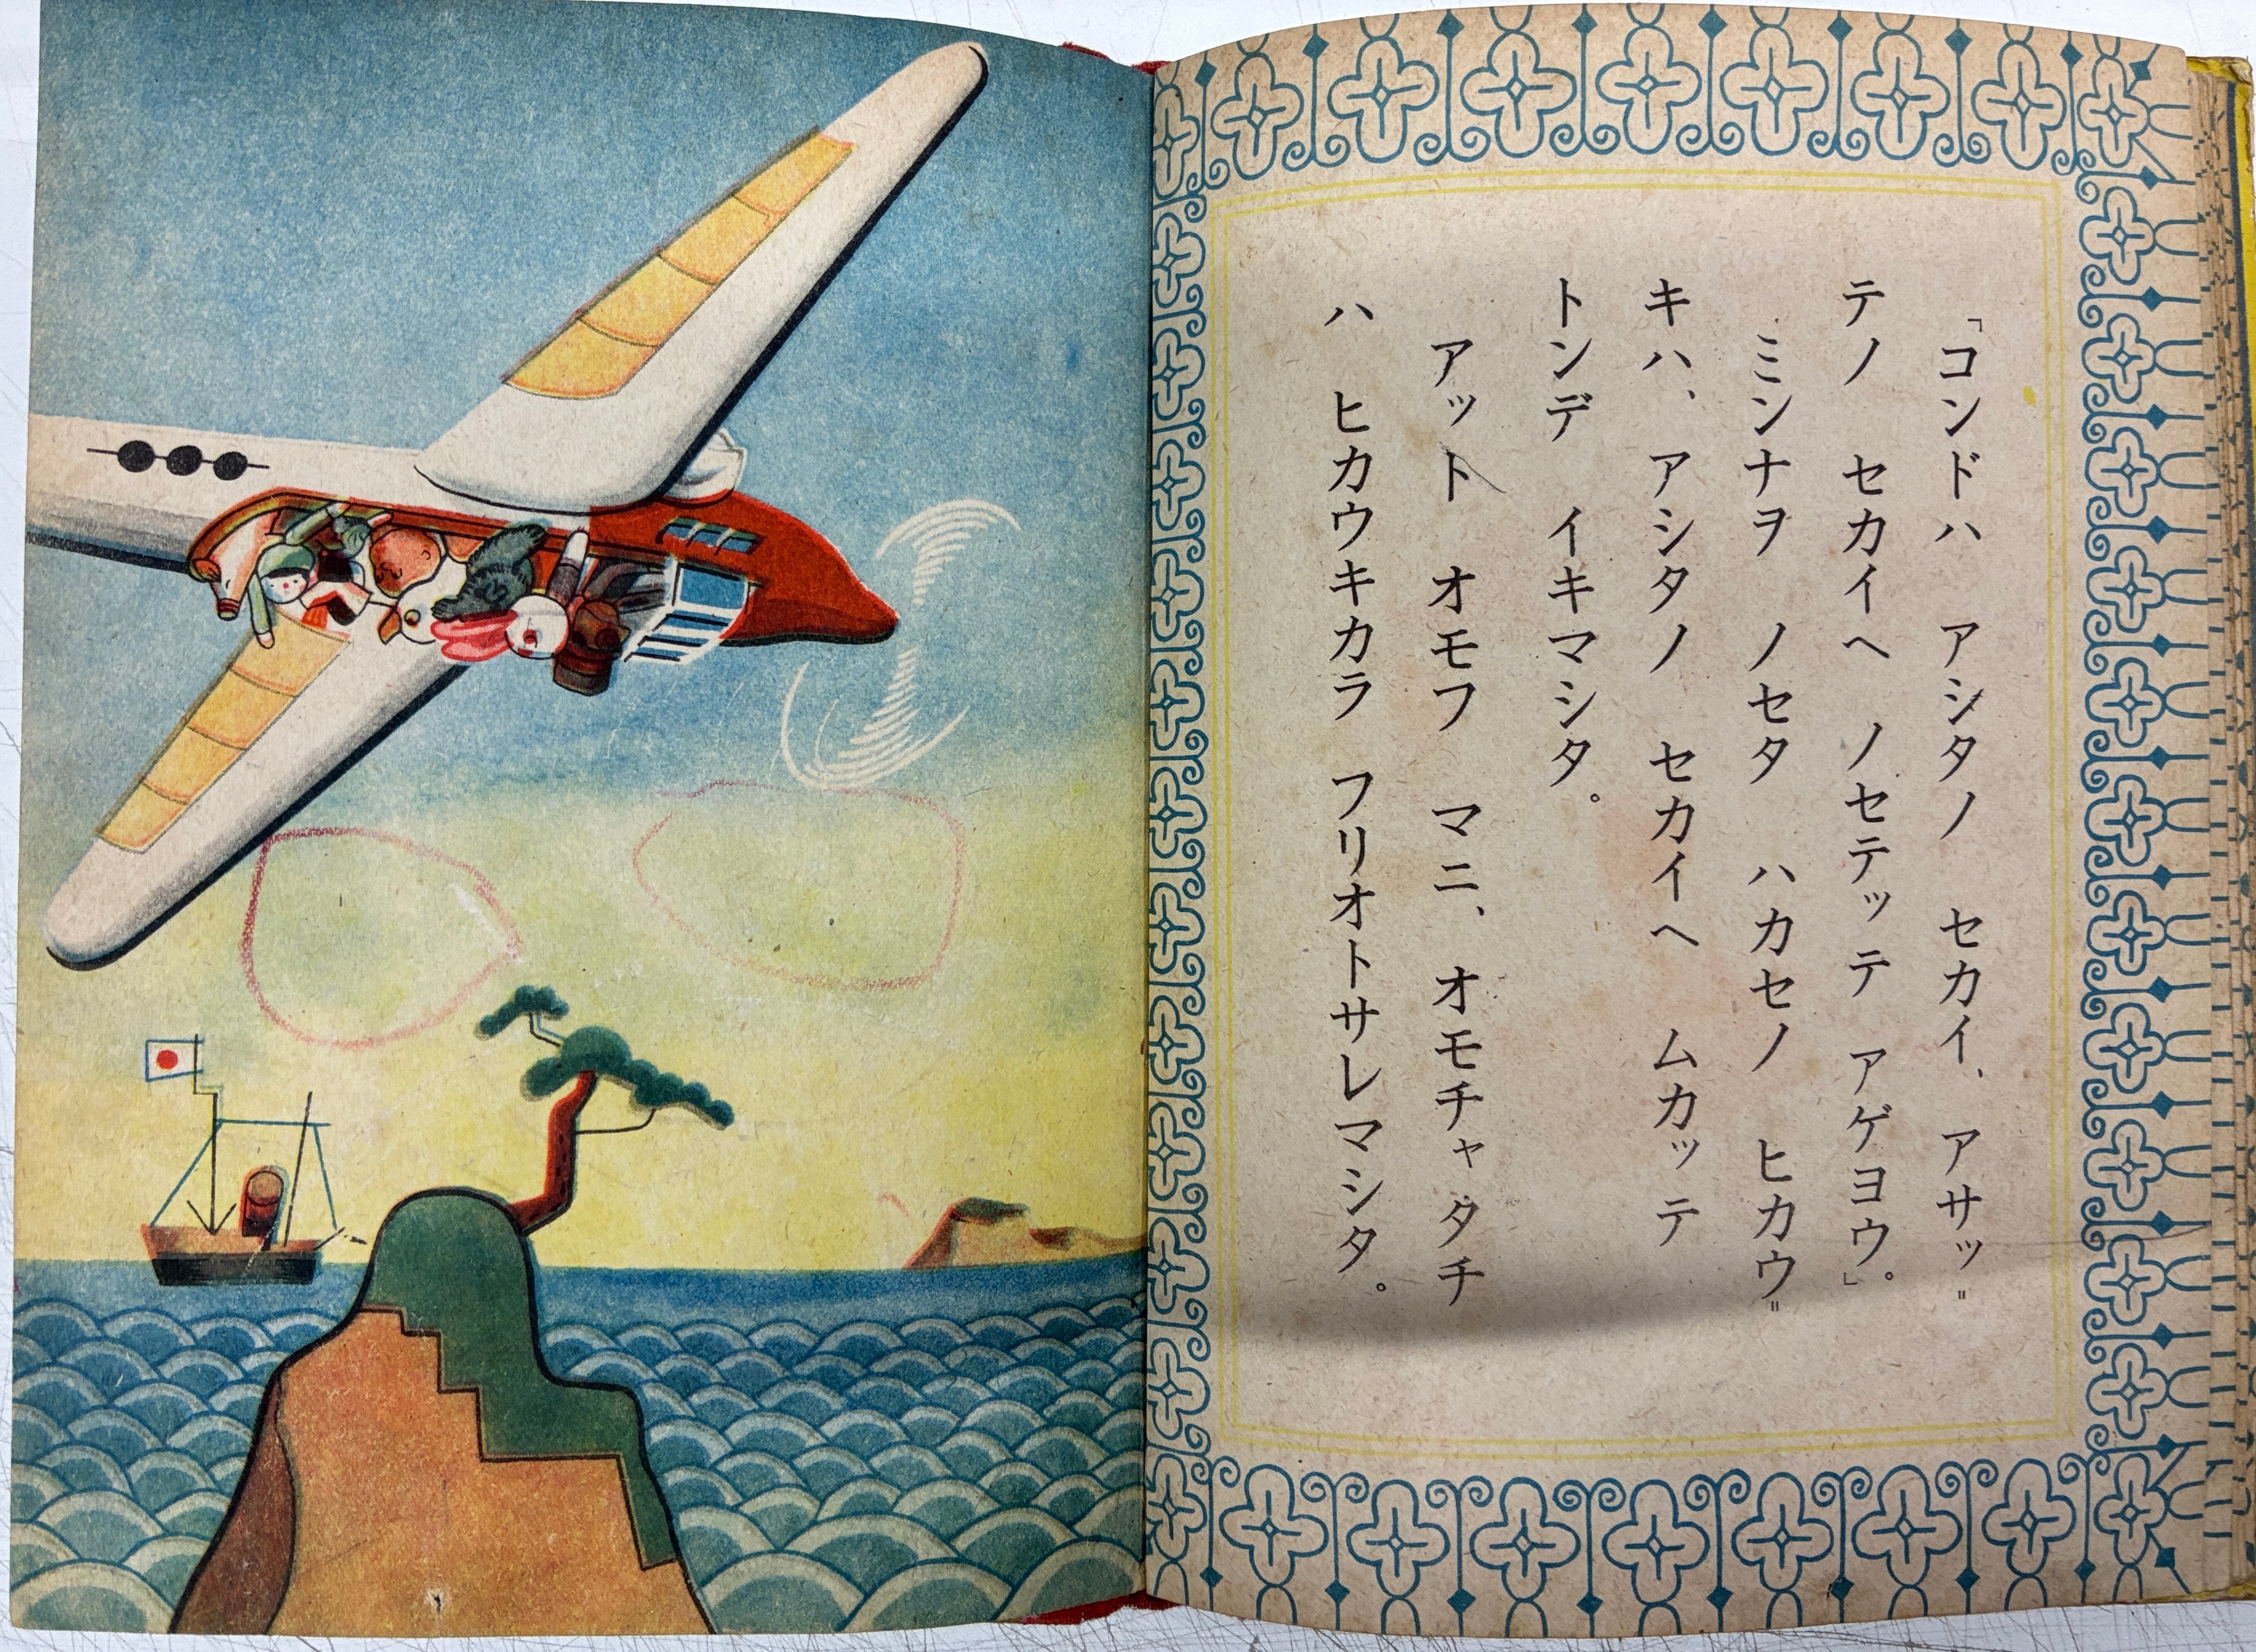 「コンドハ アシタノ セカイ、アサッ〃
テノ セカイヘ ノセテッテ アゲヨウ。」
ミンナヲ ノセタ ハカセノ ヒカウ〃
キハ、アシタノ セカイヘ ムカッテ
トンデ イキマシタ。
アット オモフ マニ、オモチャタチ
ハ ヒカウキカラ フリオトサレマシタ。